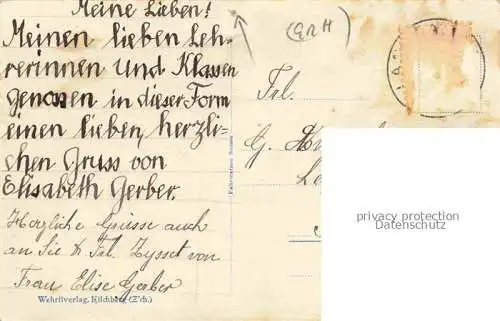 Meine Lieben!
Meinen lieben Leh-
rerinnen und Klassen
genossen in dieser Form
einen lieben, herzli-
chen Gruss von
Elisabeth Gerber.
Herzliche Grüsse auch
an Sie & Frl. Zysset von
Frau Elise Gerber
Wehrliverlag, Kilchberg (Z'ch.)
Frl.
G.
privacy protection
Datenschutz